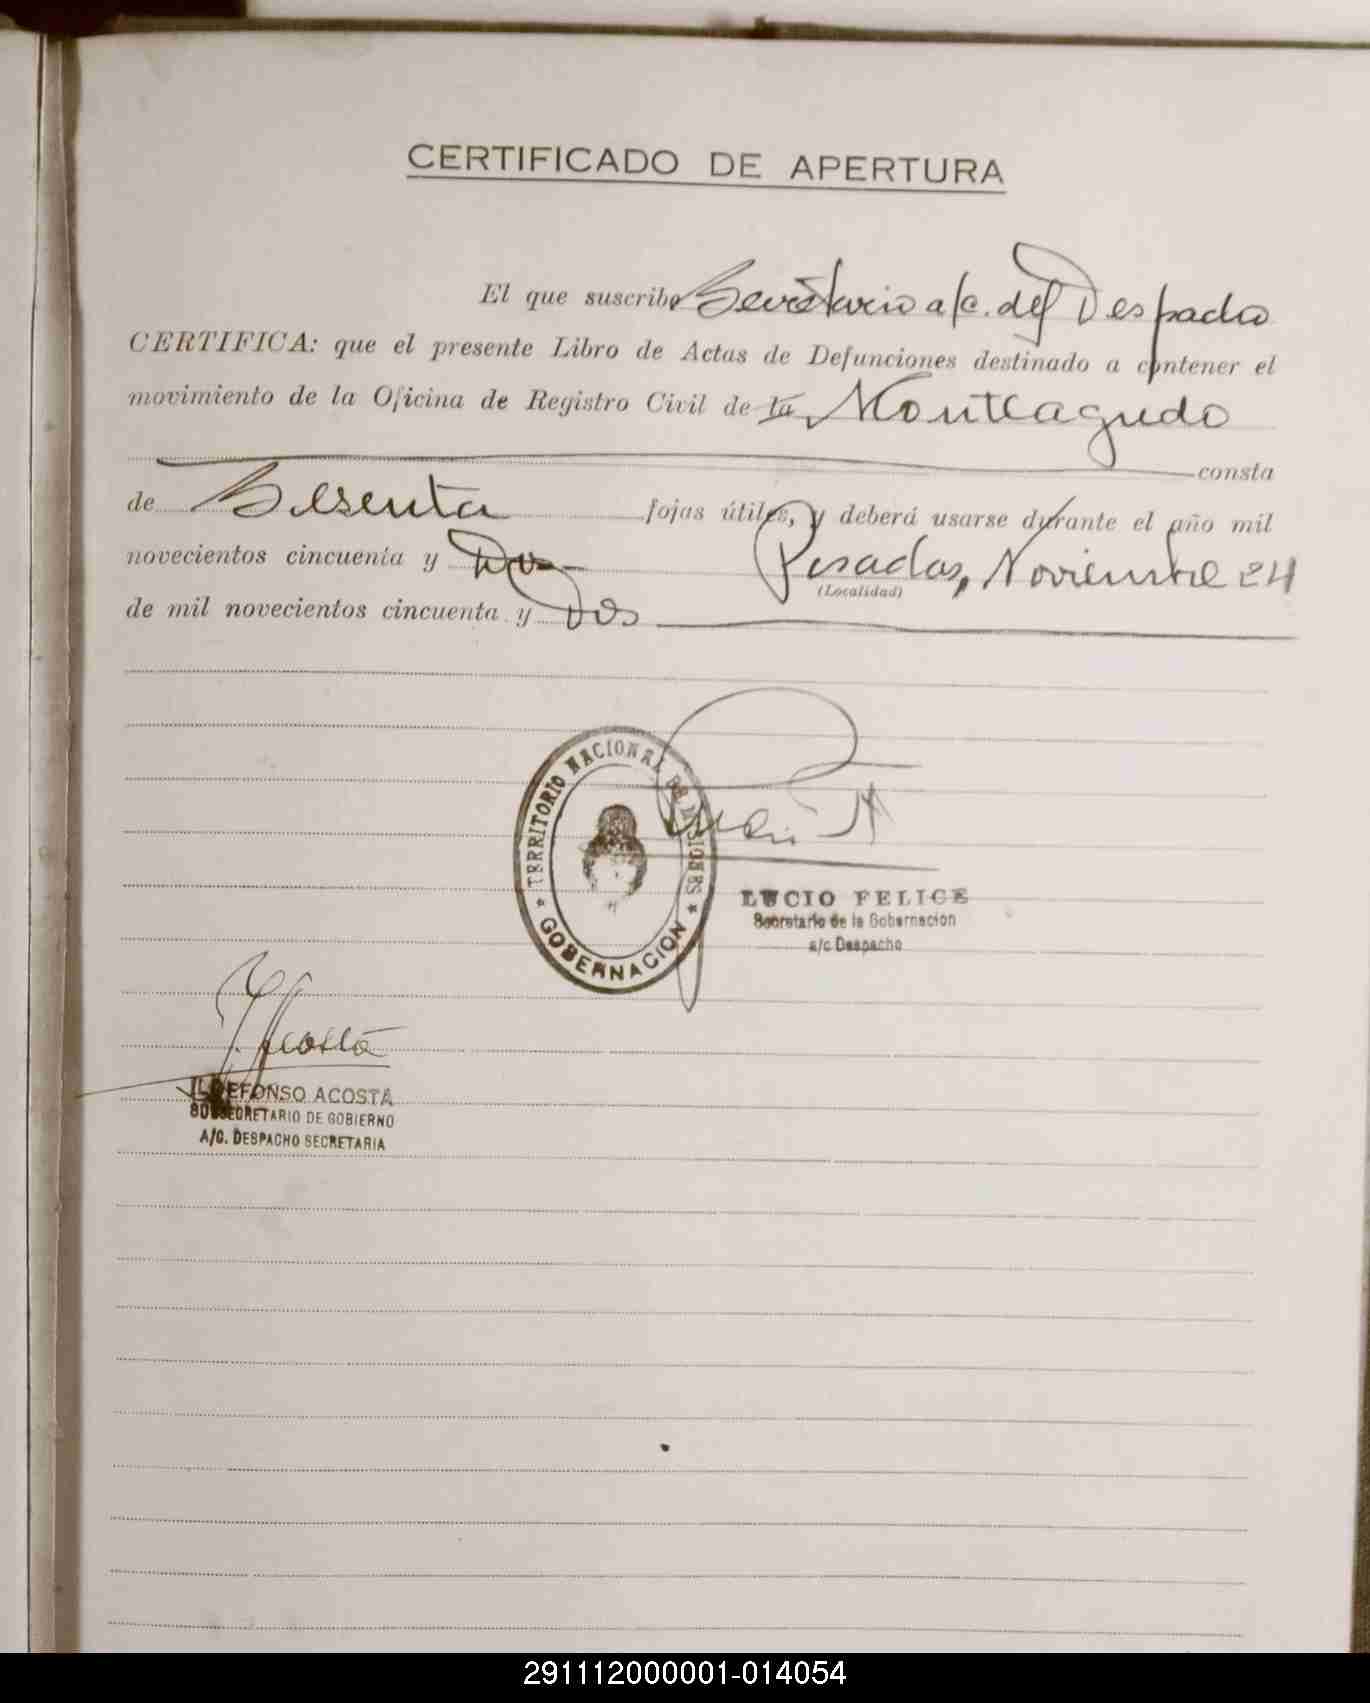 CERTIFICADO DE APERTURA
El que suscribe Secretario a/c. del Despacho
CERTIFICA: que el presente Libro de Actas de Defunciones destinado a contener el
movimiento de la Oficina de Registro Civil de la Monteagudo
consta
de Sesenta fojas útiles, y deberá usarse durante el año mil
novecientos cincuenta y Dos Posadas, Noviembre 24
(Localidad)
de mil novecientos cincuenta y Dos
TERRITORIO NACIONAL DE MISIONES
* GOBERNACION *
LUCIO FELICE
Secretario de la Gobernacion
a/c Despacho
I. Acosta
ILDEFONSO ACOSTA
SUBSECRETARIO DE GOBIERNO
A/C. DESPACHO SECRETARIA
291112000001-014054